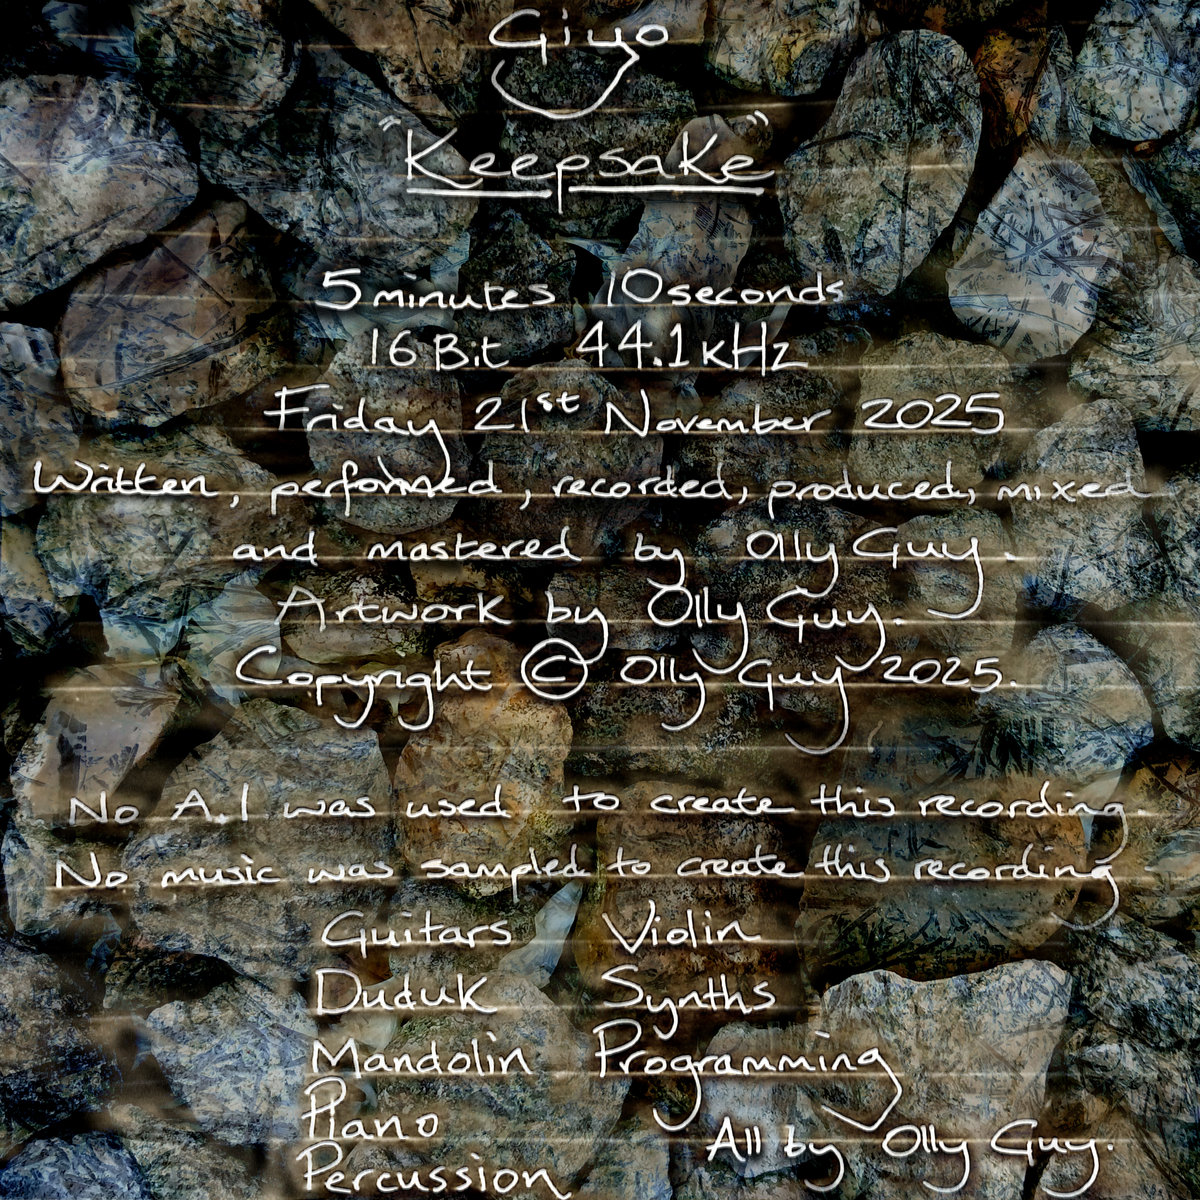 Giyo
"Keepsake"
5 minutes 10 seconds
16 Bit 44.1 kHz
Friday 21st November 2025
Written, performed, recorded, produced, mixed
and mastered by Olly Guy.
Artwork by Olly Guy.
Copyright © Olly Guy 2025.
No A.I was used to create this recording.
No music was sampled to create this recording
Guitars Violin
Duduk Synths
Mandolin Programming
Piano
All by Olly Guy.
Percussion